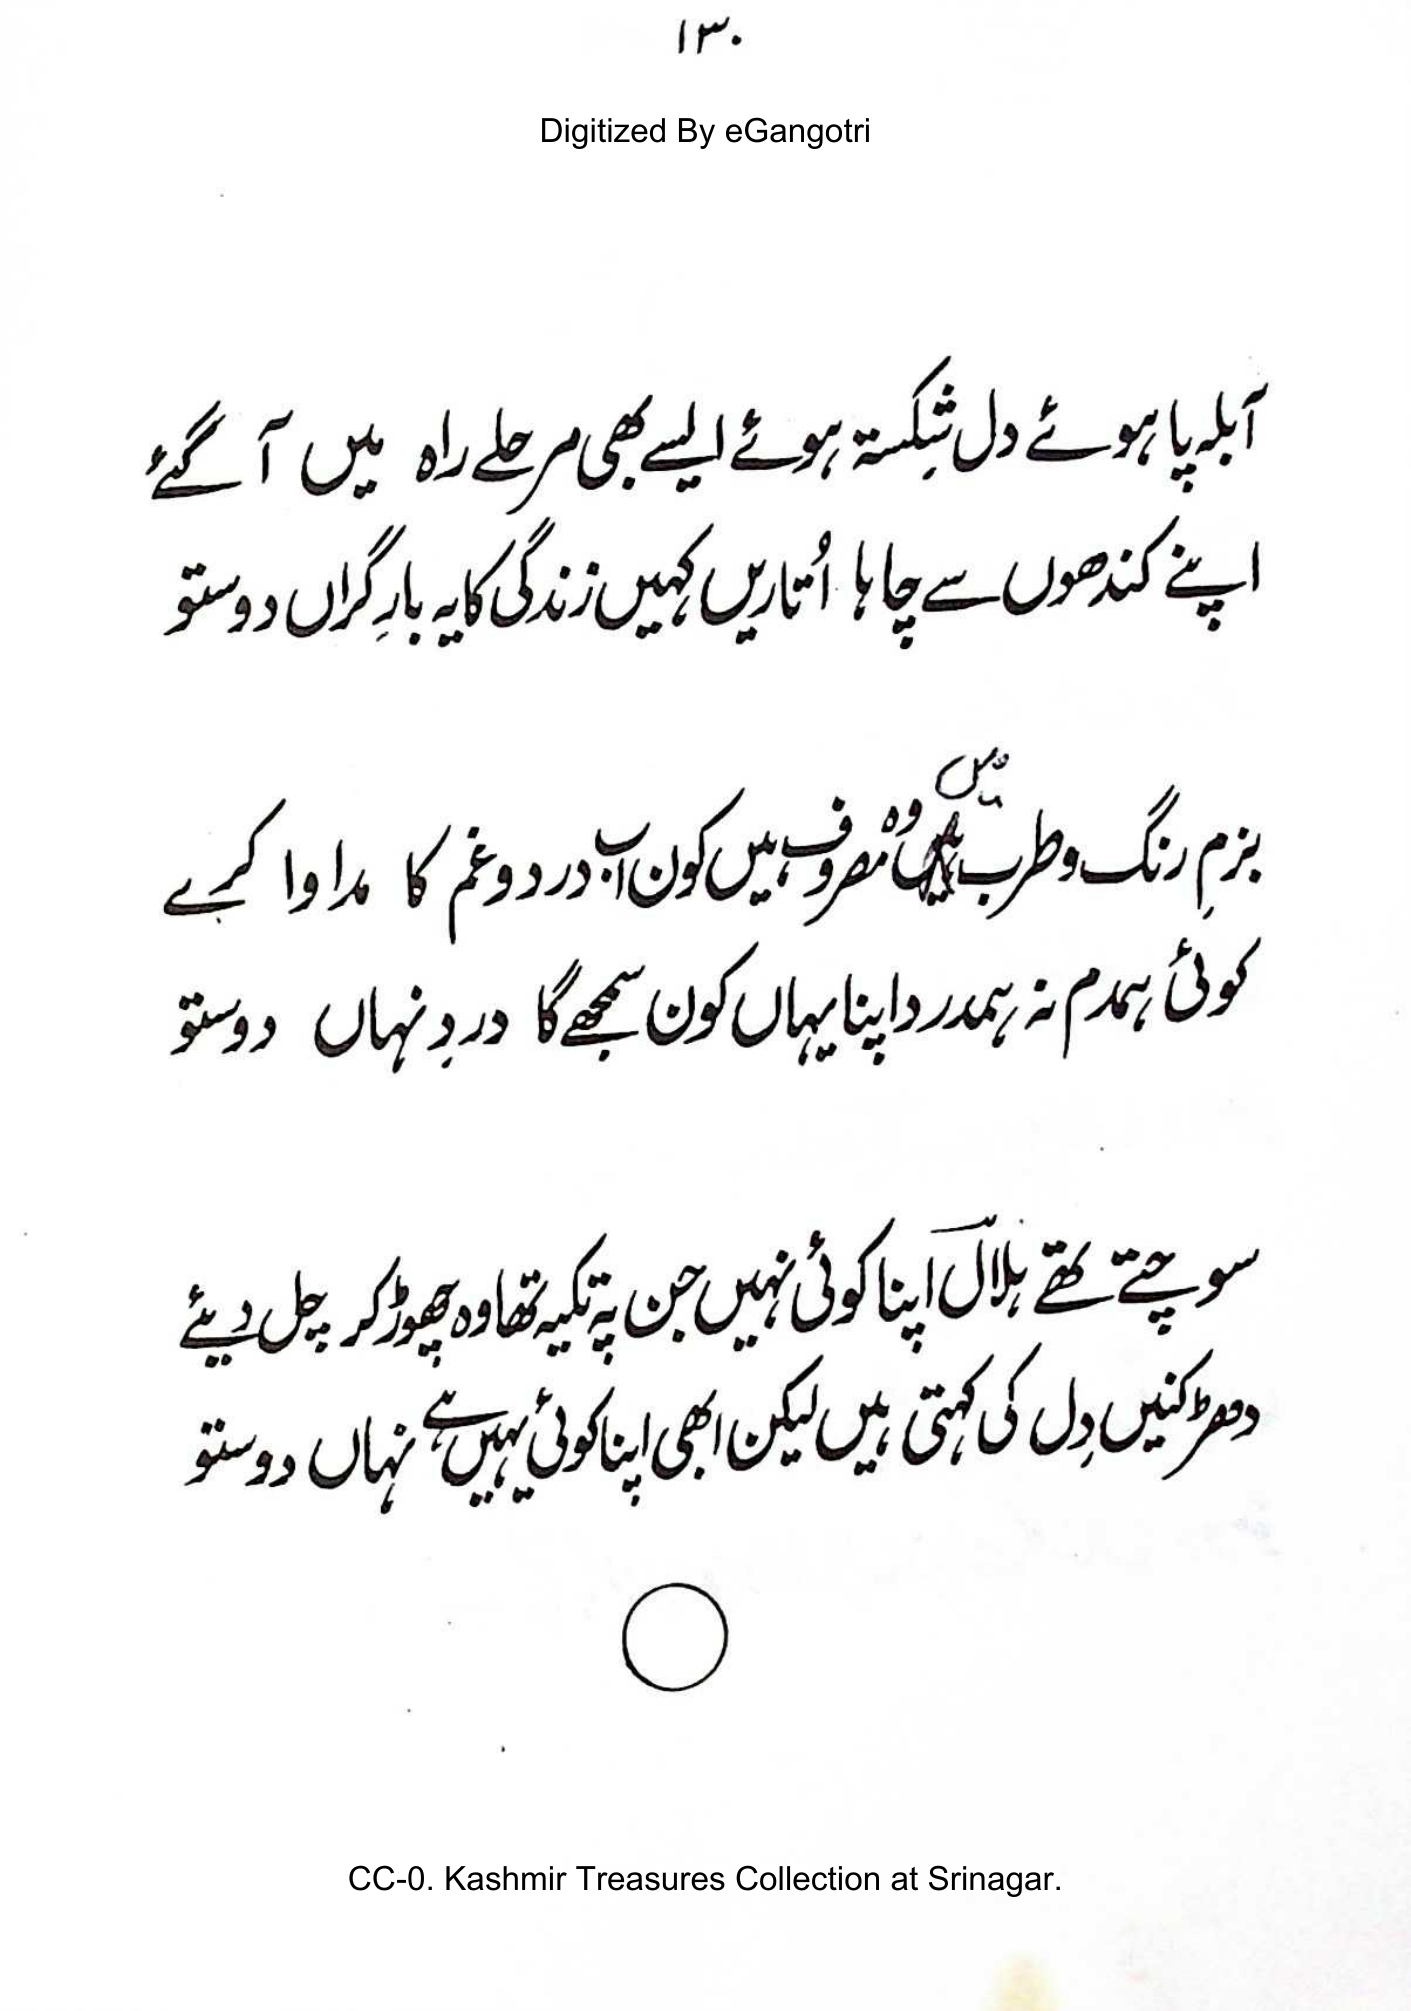 ۱۳۰
Digitized By eGangotri
آبلہ پا ہوئے دل شِکستہ ہوئے ایسے بھی مرحلے راہ میں آ گئے
اپنے کندھوں سے چاہا اُتاریں کہیں زندگی کا یہ بارِ گراں دوستو
بزمِ رنگ و طرب میں وہ مصروف ہیں کون اب درد و غم کا مداوا کرے
کوئی ہمدم نہ ہمدرد اپنا یہاں کون سمجھے گا دردِ نہاں دوستو
سوچتے تھے ہلالؔ اپنا کوئی نہیں جن پہ تکیہ تھا وہ چھوڑ کر چل دیئے
دھڑکنیں دِل کی کہتی ہیں لیکن ابھی اپنا کوئی یہیں ہے نہاں دوستو
CC-0. Kashmir Treasures Collection at Srinagar.